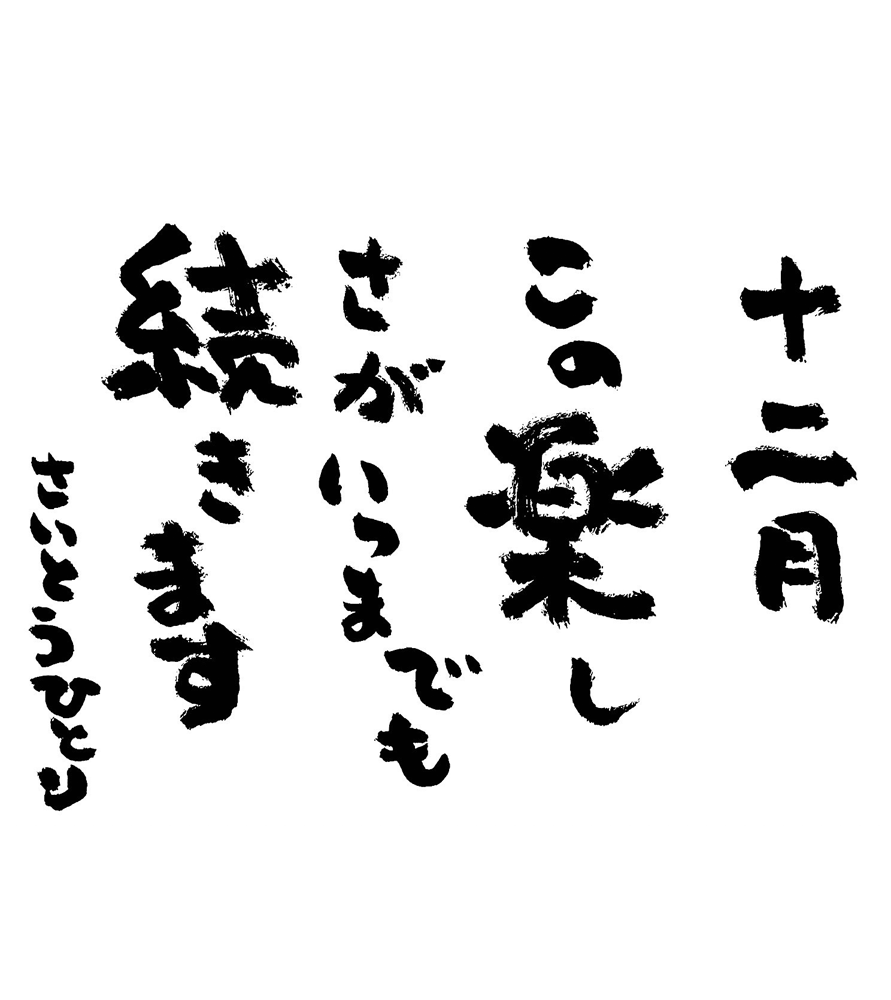 十二月
この楽し
さがいつまでも
続きます
さいとうひとり